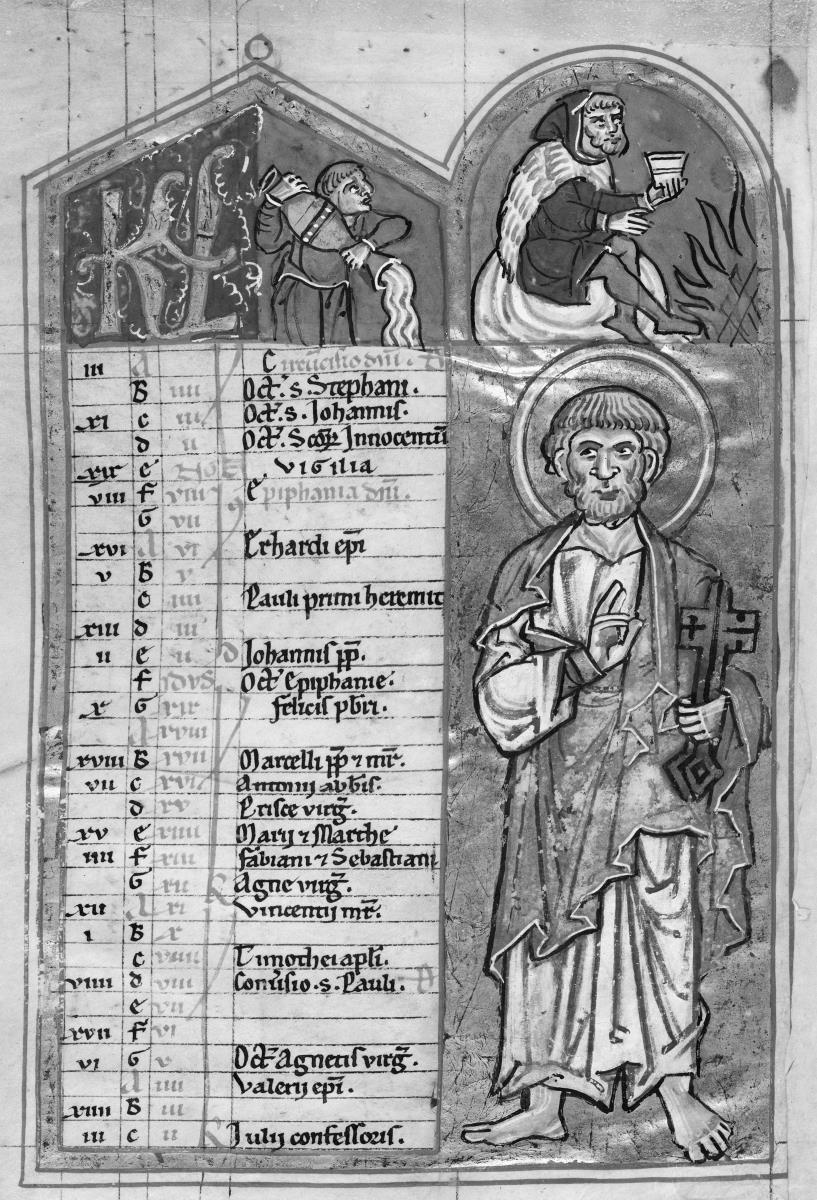 KL
iii A Circu̅cisio dn̅i.
B iiii Oct̅. s. Stephani.
xi c iii Oct̅. s. Johannis.
d ii Oct̅. Sc̅oꝝ Innocentu̅
xix e VIGILIA
viii f viii Epiphania dn̅i.
G vii
xvi A vi Erhardi ep̅i
v B v
c iiii Pauli primi heremit
xiii d iii
ii e ii Johannis pp̅.
f idvs Oct̅ Epiphanie.
x G xix felicis pb̅ri.
A xviii
xviii B xvii Marcelli pp̅ ⁊ mr̅.
vii c xvi Antonij abb̅is.
d xv Prisce virg̅.
xv e xiiii Marij ⁊ Marthe
iiii f xiii fabiani ⁊ Sebastiani
G xii Agne virg̅.
xii A xi vincentij mr̅.
i B x
c viiii Timothei apl̅i.
viiii d viii Conu̅sio. s. Pauli.
e vii
xvii f vi
vi G v Oct̅ Agnetis virg̅.
A iiii Valerij ep̅i.
xiiii B iii
iii c ii Julij confessoris.